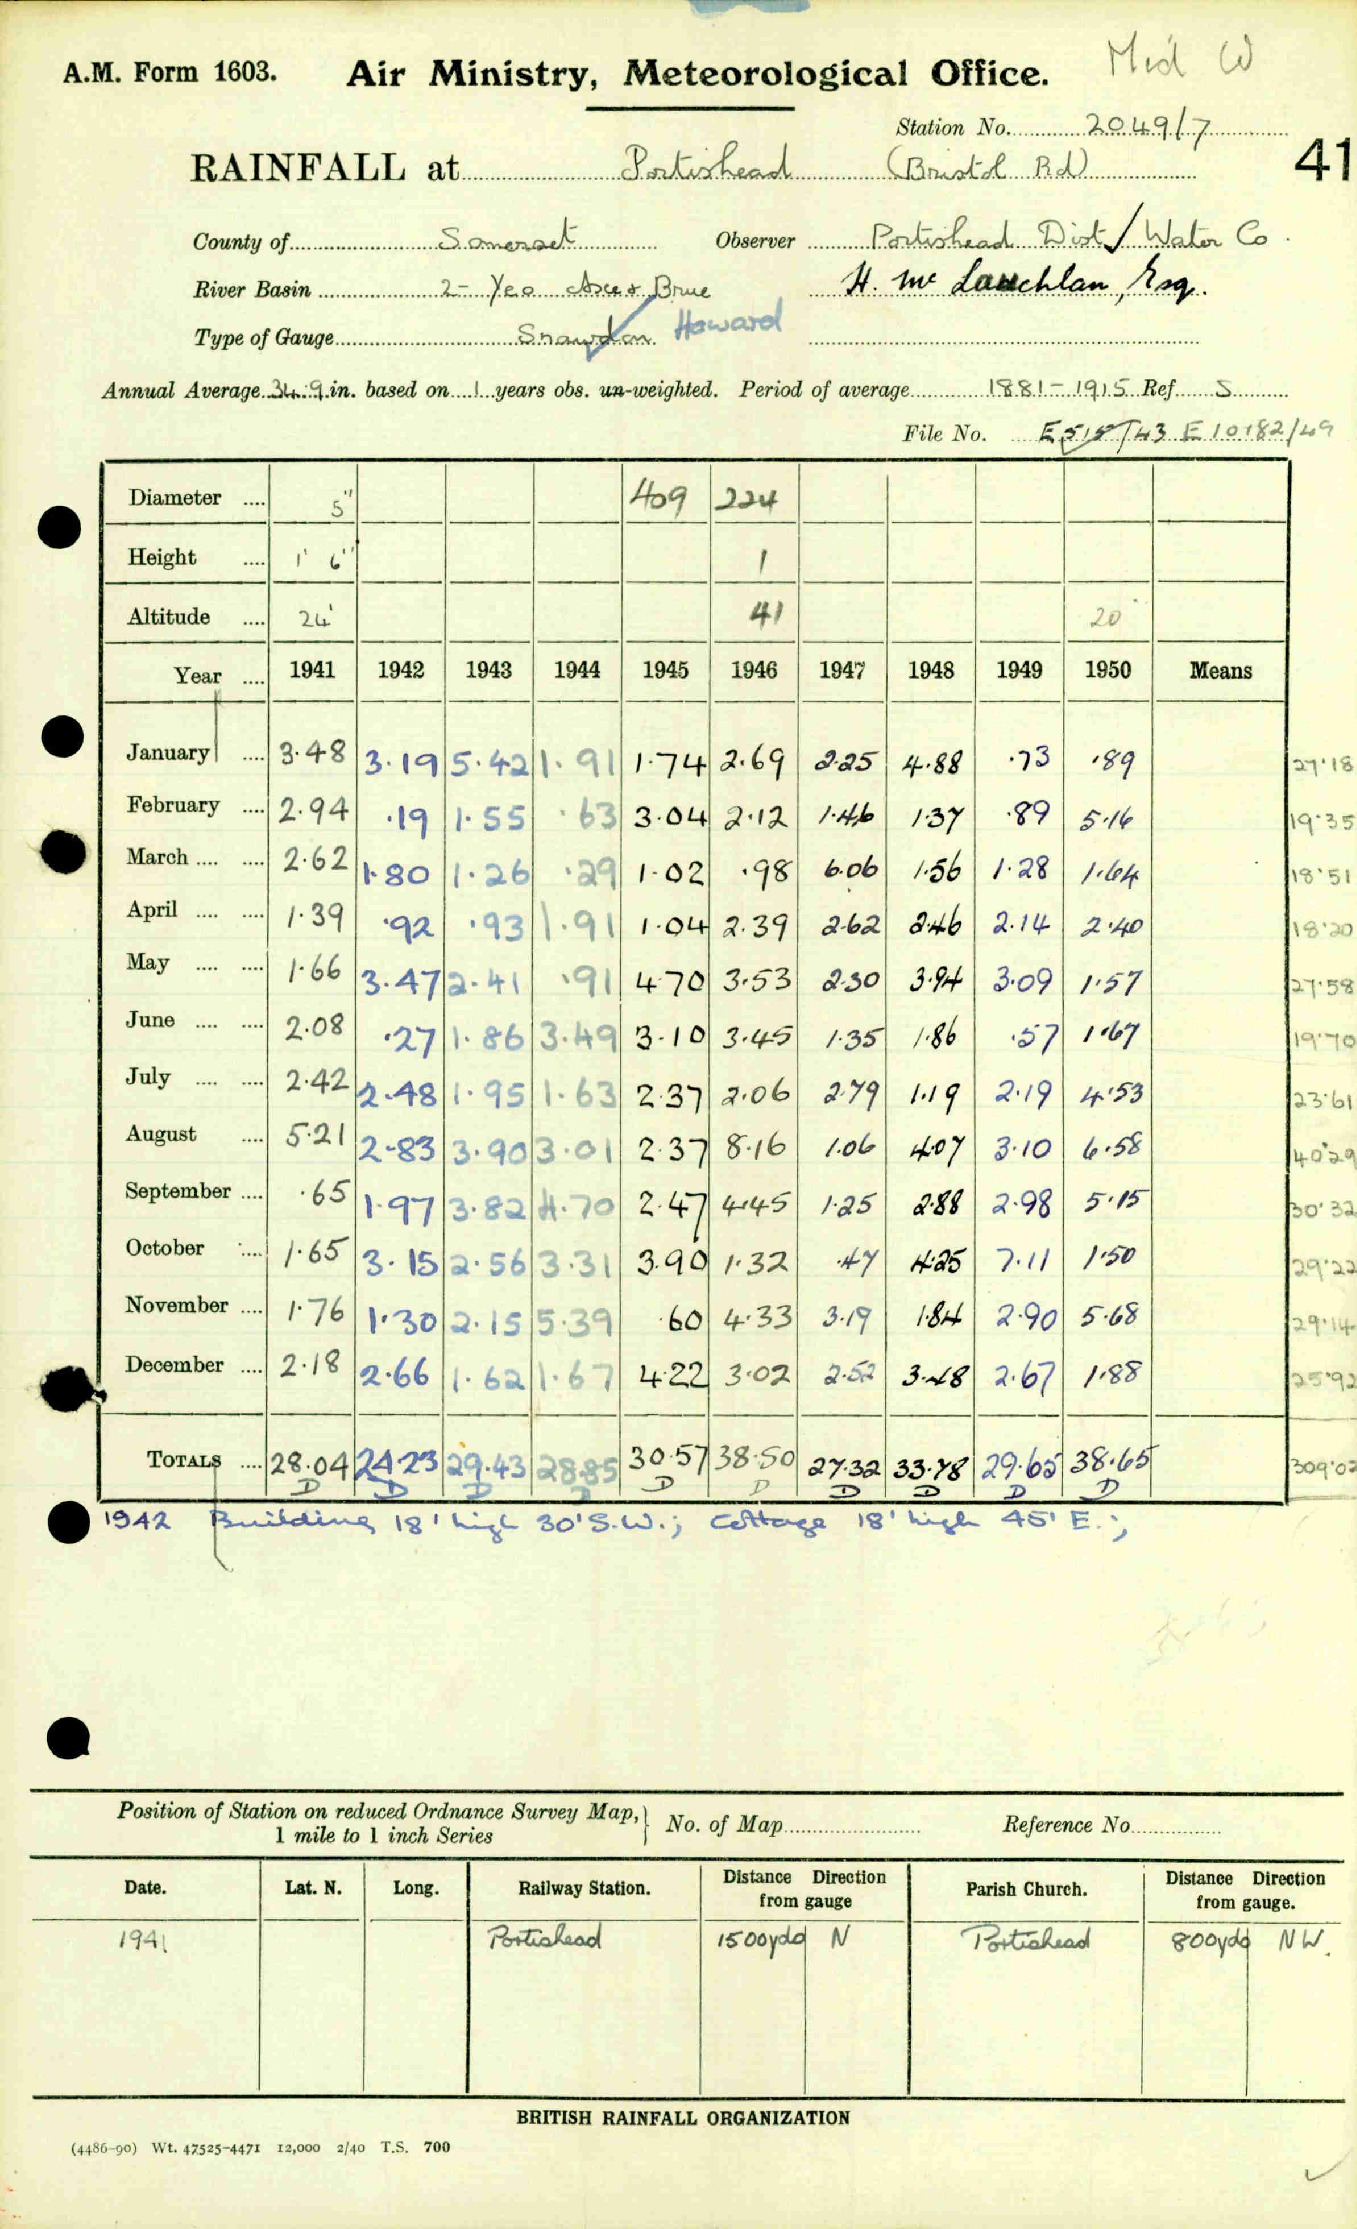 Mid W
A.M. Form 1603. Air Ministry, Meteorological Office.
Station No. 2049/7
RAINFALL at Portishead (Bristol Rd)
41
County of Somerset Observer Portishead Dist/Water Co.
River Basin 2- Yeo Axe & Brue H. Mc Lauchlan, Esq.
Type of Gauge Snowdon Howard
Annual Average 34.9 in. based on 1 years obs. un-weighted. Period of average 1881-1915 Ref S
File No. E 515/43 E 10182/49
Diameter .... 5" 409 224
Height .... 1' 6" 1
Altitude .... 24' 41 20
Year .... 1941 1942 1943 1944 1945 1946 1947 1948 1949 1950 Means
January .... 3.48 3.19 5.42 1.91 1.74 2.69 2.25 4.88 .73 .89 27.18
February .... 2.94 .19 1.55 .63 3.04 2.12 1.46 1.37 .89 5.16 19.35
March .... .... 2.62 1.80 1.26 .29 1.02 .98 6.06 1.56 1.28 1.64 18.51
April .... .... 1.39 .92 .93 1.91 1.04 2.39 2.62 2.46 2.14 2.40 18.20
May .... .... 1.66 3.47 2.41 .91 4.70 3.53 2.30 3.94 3.09 1.57 27.58
June .... .... 2.08 .27 1.86 3.49 3.10 3.45 1.35 1.86 .57 1.67 19.70
July .... .... 2.42 2.48 1.95 1.63 2.37 2.06 2.79 1.19 2.19 4.53 23.61
August .... 5.21 2.83 3.90 3.01 2.37 8.16 1.06 4.07 3.10 6.58 40.29
September .... .65 1.97 3.82 4.70 2.47 4.45 1.25 2.88 2.98 5.15 30.32
October .... 1.65 3.15 2.56 3.31 3.90 1.32 .47 4.25 7.11 1.50 29.22
November .... 1.76 1.30 2.15 5.39 .60 4.33 3.19 1.84 2.90 5.68 29.14
December .... 2.18 2.66 1.62 1.67 4.22 3.02 2.52 3.48 2.67 1.88 25.92
TOTALS .... 28.04 24.23 29.43 28.85 30.57 38.50 27.32 33.78 29.65 38.65 309.02
D D D D D D D D D D
1942 Building 18' high 30' S.W.; Cottage 18' high 45' E.;
Position of Station on reduced Ordnance Survey Map, 1 mile to 1 inch Series No. of Map Reference No.
Date. Lat. N. Long. Railway Station. Distance Direction from gauge Parish Church. Distance Direction from gauge.
1941 Portishead 1500yds N Portishead 800yds NW.
BRITISH RAINFALL ORGANIZATION
(4486-90) Wt. 47525-4471 12,000 2/40 T.S. 700